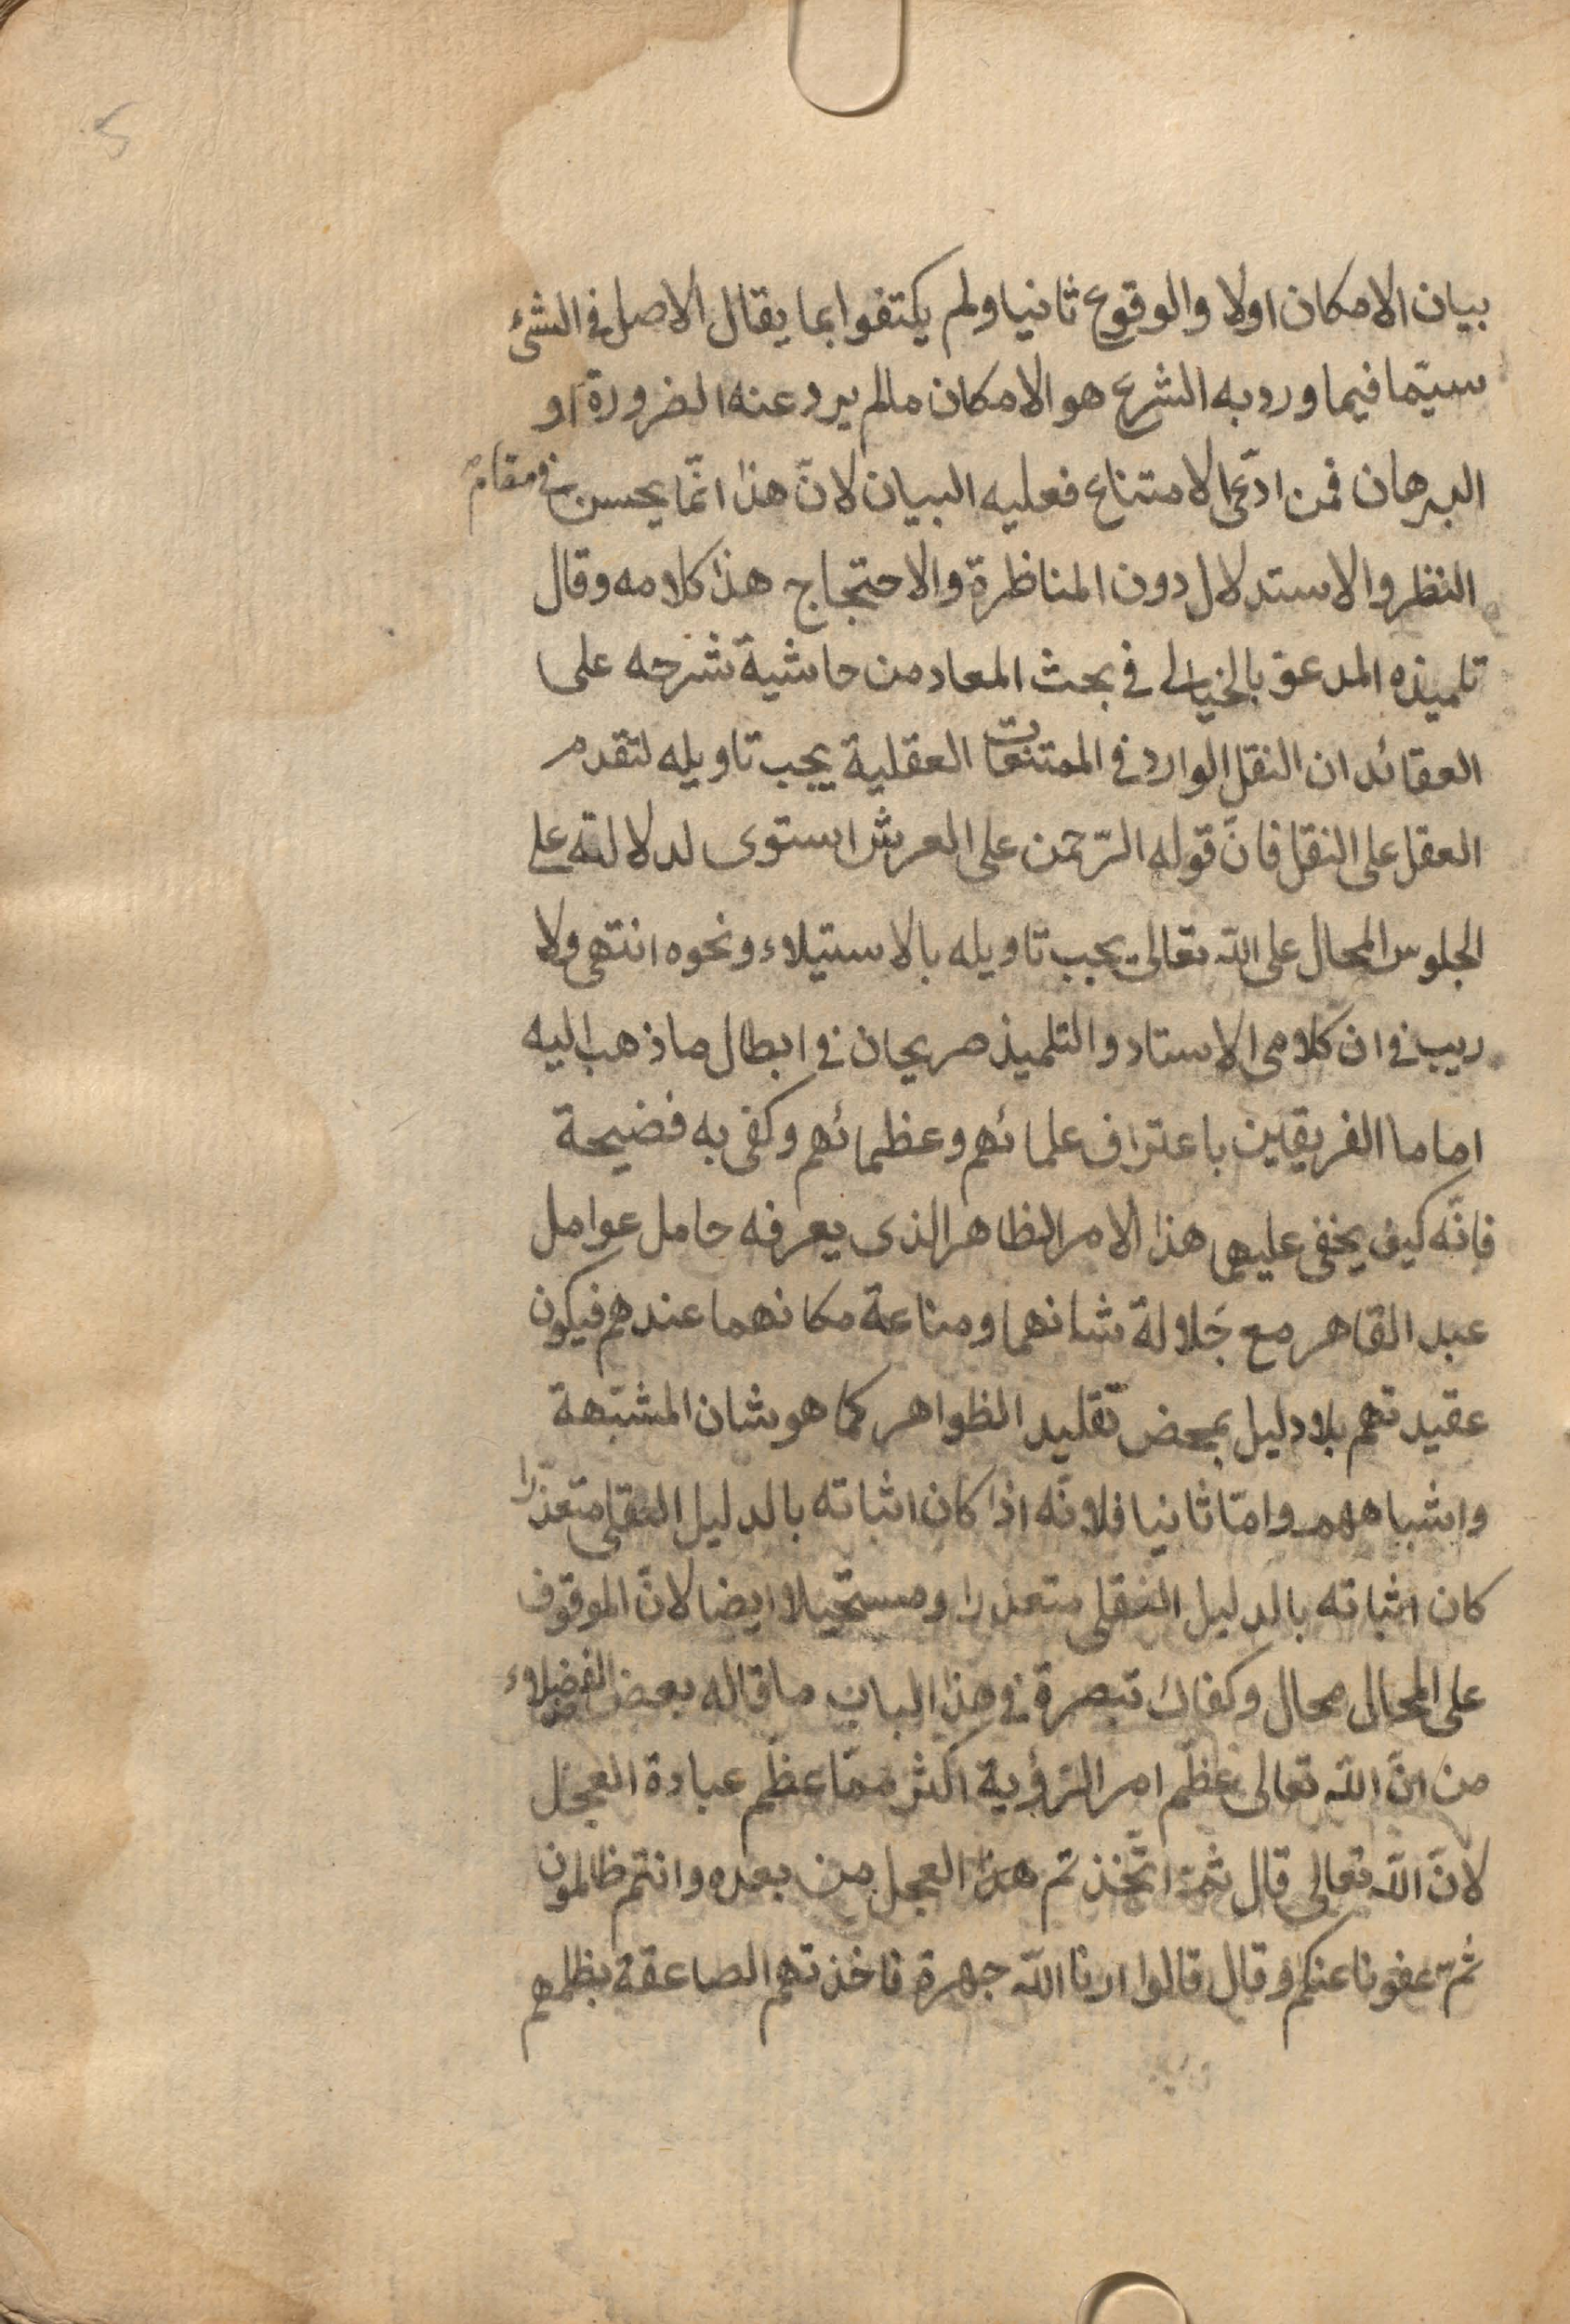 5
بيان الامكان اولا والوقوع ثانيا ولم يكتفوا بما يقال الاصل فى الشئ
سيّما فيما ورد به الشرع هو الامكان مالم يرد عنه الضرورة او
البرهان فمن ادّعى الامتناع فعليه البيان لانّ هذا انّما يحسن فى مقام
النظر والاستدلال دون المناظرة والاحتجاج هذا كلامه وقال
تلميذه المدعو بالخيالى فى بحث المعاد من حاشية شرحه على
العقائد ان النقل الوارد فى الممتنعات العقلية يجب تاويله لتقدم
العقل على النقل فانّ قوله الرّحمن على العرش استوى لدلالته على
الجلوس المحال على الله تعالى يجب تاويله بالاستيلاء ونحوه انتهى ولا
ريب فى ان كلامى الاستاد والتلميذ صريحان فى ابطال ما ذهب اليه
اماما الفريقين باعتراف علمائهم وعظمائهم وكفى به فضيحة
فانّه كيف يخفى عليهما هذا الامر الظاهر الذى يعرفه حامل عوامل
عبد القاهر مع جَلالة شانهما ومناعة مكانهما عندهم فيكون
عقيدتهم بلا دليل بمحض تقليد الظواهر كما هو شان المشبّهة
واشباههم وامّا ثانيا فلانّه اذا كان اثباته بالدليل العقلى متعذّرا
كان اثباته بالدليل النقلى متعذرا ومستحيلا ايضا لانّ الموقوف
على المحال محال وكفاك تبصرة فى هذا الباب ما قاله بعض الفضلاء
من انّ الله تعالى عظّم امر الرّؤية اكثر ممّا عظّم عبادة العجل
لانّ الله تعالى قال ثمّ اتّخذتم هذا العجل من بعده وانتم ظالمون
ثمّ عفونا عنكم وقال قالوا ارنا الله جهرة فاخذتهم الصاعقة بظلمهم